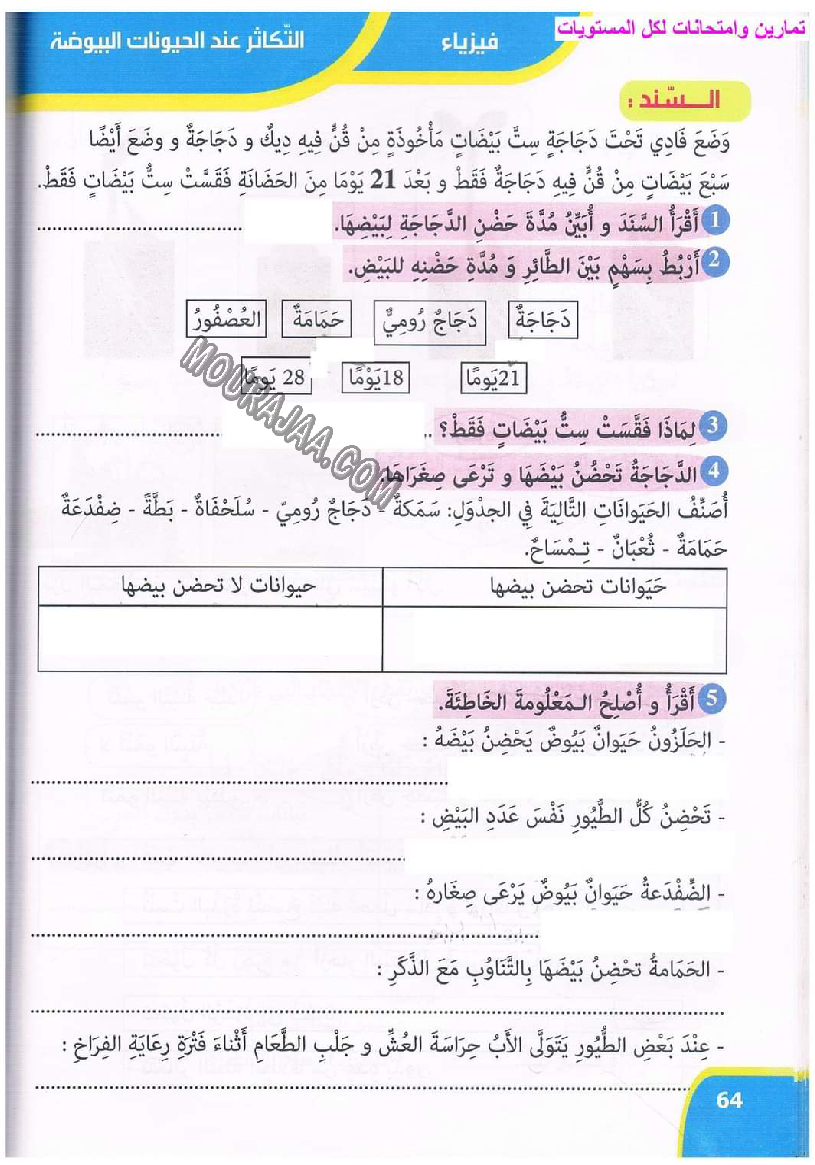 تمارين وامتحانات لكل المستويات
فيزياء
التّكاثر عند الحيونات البيوضة
السّند :
وَضَعَ فَادِي تَحْتَ دَجَاجَةٍ سِتَّ بَيْضَاتٍ مَأْخُوذَةٍ مِنْ قُنٍّ فِيهِ دِيكٌ و دَجَاجَةٌ و وضَعَ أَيْضًا
سَبْعَ بَيْضَاتٍ مِنْ قُنٍّ فِيهِ دَجَاجَةٌ فَقَطْ و بَعْدَ 21 يَوْمًا مِنَ الحَضَانَةِ فَقَسَّتْ سِتُّ بَيْضَاتٍ فَقَطْ.
1 أَقْرَأُ السَّنَدَ و أُبَيِّنُ مُدَّةَ حَضْنِ الدَّجَاجَةِ لِبَيْضِهَا. ........................................
2 أَرْبُطُ بِسَهْمٍ بَيْنَ الطَّائِرِ وَ مُدَّةِ حَضْنِهِ للبَيْضِ.
دَجَاجَةٌ دَجَاجٌ رُومِيٌّ حَمَامَةٌ العُصْفُورُ
21يَومًا 18يَوْمًا 28 يَومًا
MOURAJAA.COM
3 لِمَاذَا فَقَّسَتْ سِتُّ بَيْضَاتٍ فَقَطْ؟ .....................................
4 الدَّجَاجَةُ تَحْضُنُ بَيْضَهَا و تَرْعَى صِغَارَاهَا.
أُصَنِّفُ الحَيَوَانَاتِ التَّالِيَةَ فِي الجدْوَلِ: سَمَكةٌ - دَجَاجٌ رُومِيّ - سُلَحْفَاةٌ - بَطَّةً - ضِفْدَعَةٌ
حَمَامَةٌ - ثُعْبَانٌ - تِمْسَاحٌ.
حَيَوانات تحضن بيضها حيوانات لا تحضن بيضها
5 أَقْرَأُ و أُصْلِحُ المَعْلُومةَ الخَاطِئَةَ.
- الحِلَزُونُ حَيَوانٌ بَيُوضٌ يَحْضِنُ بَيْضَهُ :
................................................................................
- تَحْضِنُ كُلُّ الطُّيُورِ نَفْسَ عَدَدِ البَيْضِ :
................................................................................
- الضِّفْدَعةُ حَيَوانٌ بَيُوضٌ يَرْعَى صِغَارهُ :
................................................................................
- الحَمَامةُ تحْضِنُ بَيْضَهَا بِالتَّنَاوُبِ مَعَ الذَّكَرِ :
................................................................................
- عِنْدَ بَعْضِ الطُّيُورِ يَتَولَّى الأَبُ حِرَاسَةَ العُشِّ و جَلْبِ الطَّعَامِ أَثْنَاءَ فَتْرَةِ رِعَايَةِ الفِرَاخِ :
................................................................................
64